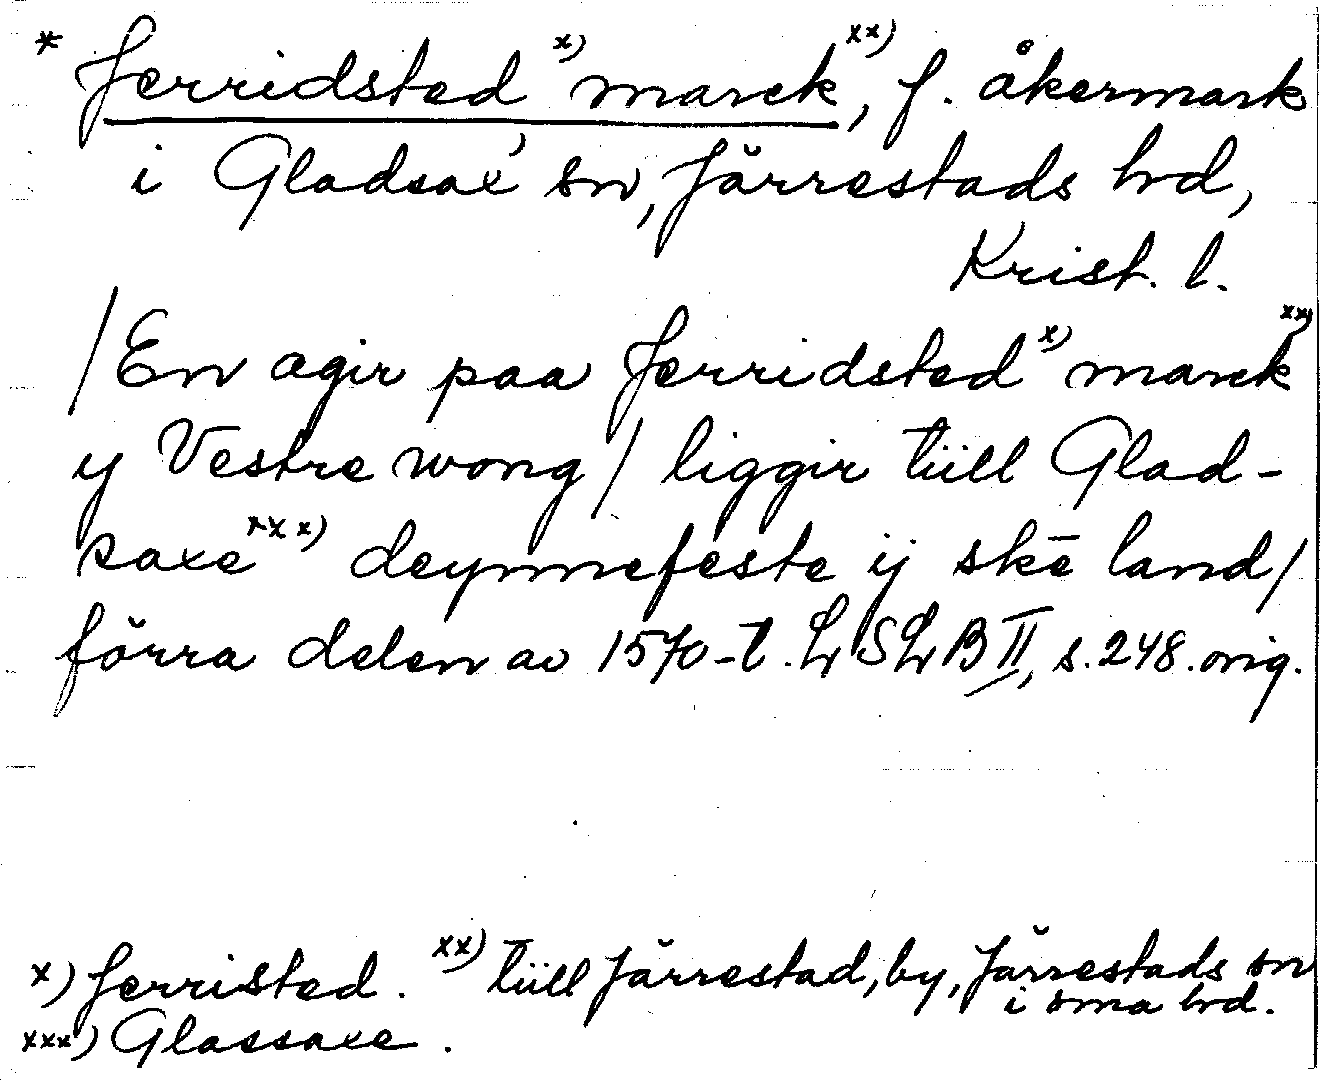 * Jerridsted x) marck xx), f. åkermark
i Gladsax' sn, Järrestads hd,
Krist. l.
/En agir paa Jerridsted x) marck xx)
y Vestre wong/ liggir tiill Glad-
saxe xxx) deynnefeste ij skē land/
förra delen av 1570-t. LSLB II, s. 248. orig.
x) Jerristed. xx) tiill Järrestad, by, Järrestads sn
i sma hd.
xxx) Glassaxe.